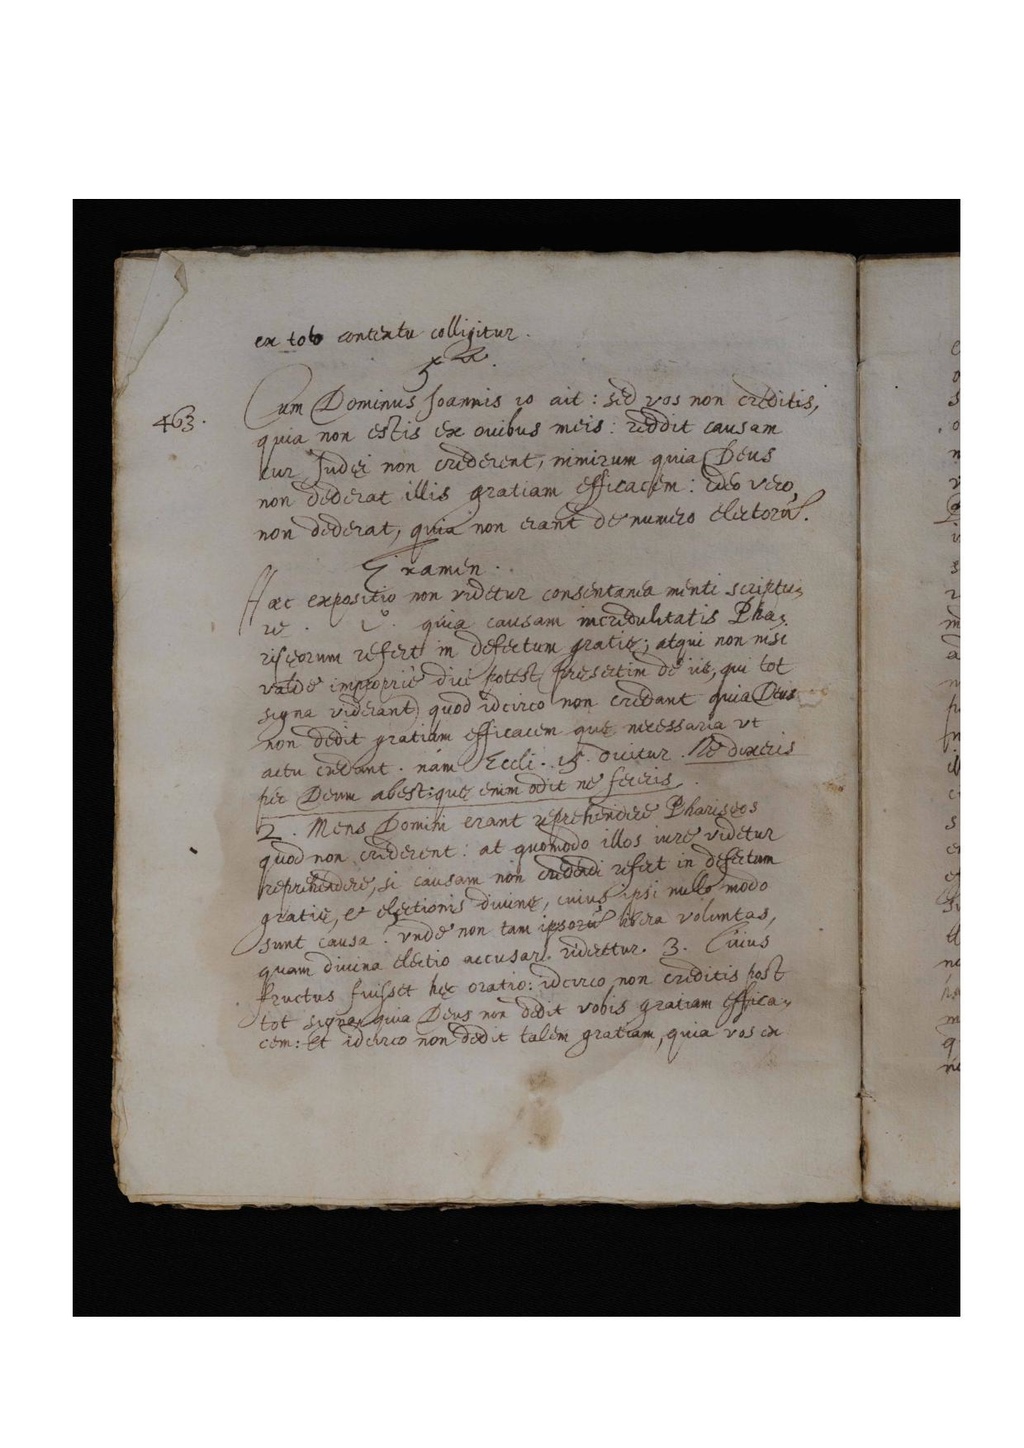 ex toto contextu colligitur.
5ᵃ
463.
Cum Dominus Joannis 10 ait: sed vos non creditis,
quia non estis ex ouibus meis: reddit causam
cur Judęi non crederent, nimirum quia Deus
non dederat illis gratiam efficacem: ideo vero
non dederat, quia non erant de numero electorũ.
Examen.
Hæc expositio non videtur consentanea menti scriptu-
rę. 1º. quia causam incredulitatis Pha-
risęorum refert in defectum gratię; atqui non nisi
valde impropriè dici potest (pręsertim de iis, qui tot
signa viderant) quod idcirco non credant quia Deus
non dedit gratiam efficacem quę necessaria vt
actu credant. nam Eccli. 15. dicitur. Ne dixeris
per Deum abest: quę enim odit ne feceris.
2. Mens Domini erant reprehendere Pharisęos
quod non crederent: at quomodo illos iure videtur
reprehendere, si causam non credendi refert in defectum
gratię, et electionis diuinę, cuius ipsi nullo modo
sunt causa? vnde non tam ipsorũ libera voluntas,
quam diuina electio accusari videretur. 3. Cuius
fructus fuisset hęc oratio: idcirco non creditis post
tot signa, quia Deus non dedit vobis gratiam effica-
cem: Et idcirco non dedit talem gratiam, quia vos ex